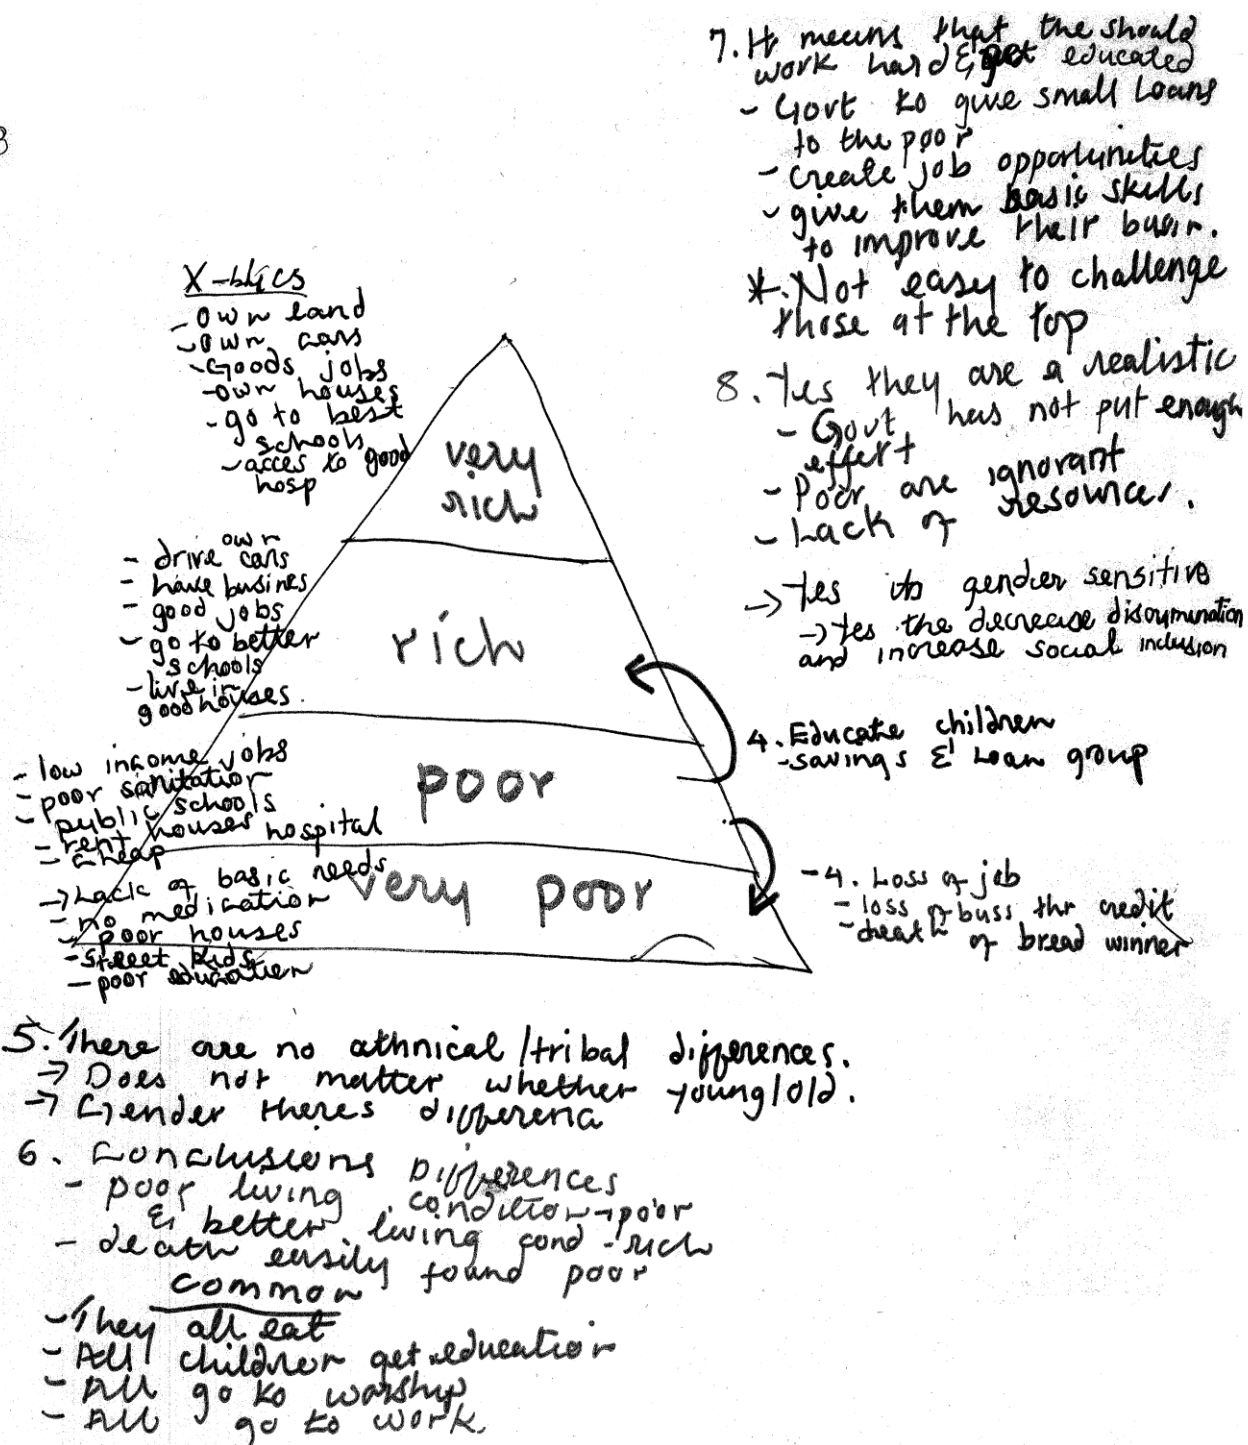 3
7. It means that the should
work hard & get educated
- Govt to give small Loans
to the poor
- create job opportunities
- give them basic skills
to improve their busin.
*. Not easy to challenge
those at the top
8. Yes they are a realistic
- Govt has not put enough
effort
- Poor are ignorant
- Lack of resources.
→ Yes its gender sensitive
→ Yes the decrease discrimination
and increase social inclusion
X-tics
- own land
- own cars
- Goods jobs
- own houses
- go to best
schools
- acces to good
hosp
very
rich
own
- drive cars
- have busines
- good jobs
- go to better
schools
- live in
good houses.
rich
4. Educate children
- savings & Loan group
- low income jobs
- poor sanitation
- public schools
- rent houses
- cheap hospital
poor
→ Lack of basic needs
- no medication
- poor houses
- street kids
- poor education
very poor
- 4. Loss of job
- loss of buss thr credit
- death of bread winner
5. There are no athnical/tribal differences.
→ Does not matter whether young/old.
→ Gender theres differenc
6. Conclusions Differences
- poor living condition → poor
& better living cond - rich
- death easily found poor
common
- They all eat
- All children get education
- All go to worship
- All go to work.